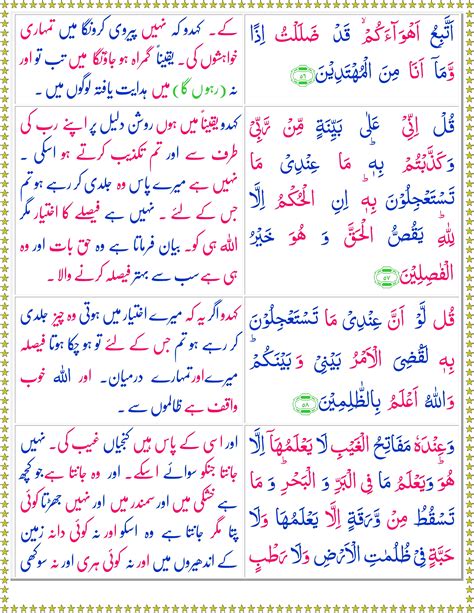 اَتَّبِعُ اَهْوَآءَكُمْ ۙ قَدْ ضَلَلْتُ اِذًا
وَّمَاۤ اَنَا مِنَ الْمُهْتَدِيْنَ ۝۵۶
کے۔ کہدو کہ نہیں پیروی کرونگا میں تمہاری
خواہشوں کی۔ یقیناً گمراہ ہو جاؤنگا میں تب تو اور
نہ (رہوں گا) میں ہدایت یافتہ لوگوں میں ۔
قُلْ اِنِّىْ عَلٰى بَيِّنَةٍ مِّنْ رَّبِّىْ
وَكَذَّبْتُمْ بِهٖ ؕ مَا عِنْدِىْ مَا
تَسْتَعْجِلُوْنَ بِهٖ ؕ اِنِ الْحُكْمُ اِلَّا
لِلّٰهِ ؕ يَقُصُّ الْحَقَّ وَ هُوَ خَيْرُ
الْفٰصِلِيْنَ ۝۵۷
کہدو یقیناً میں ہوں روشن دلیل پر اپنے رب کی
طرف سے اور تم تکذیب کرتے ہو اسکی ۔
نہیں ہے میرے پاس وہ جلدی کر رہے ہو تم
جس کے لئے ۔ نہیں ہے فیصلے کا اختیار مگر
اللہ ہی کو۔ بیان فرماتا ہے وہ حق بات اور وہ
ہی ہے سب سے بہتر فیصلہ کرنے والا ۔
قُل لَّوْ اَنَّ عِنْدِىْ مَا تَسْتَعْجِلُوْنَ
بِهٖ لَقُضِىَ الْاَمْرُ بَيْنِىْ وَبَيْنَكُمْ ؕ
وَاللّٰهُ اَعْلَمُ بِالظّٰلِمِيْنَ ۝۵۸
کہدو اگر یہ کہ میرے اختیار میں ہوتی وہ چیز جلدی
کر رہے ہو تم جس کے لئے تو ہو چکا ہوتا فیصلہ
میرے اور تمہارے درمیان۔ اور اللہ خوب
واقف ہے ظالموں سے ۔
وَعِنْدَهٗ مَفَاتِحُ الْغَيْبِ لَا يَعْلَمُهَاۤ اِلَّا
هُوَ ؕ وَيَعْلَمُ مَا فِى الْبَرِّ وَ الْبَحْرِ ؕ وَ مَا
تَسْقُطُ مِنْ وَّرَقَةٍ اِلَّا يَعْلَمُهَا وَلَا
حَبَّةٍ فِىْ ظُلُمٰتِ الْاَرْضِ وَلَا رَطْبٍ
اور اسی کے پاس ہیں کنجیاں غیب کی۔ نہیں
جانتا جنکو سوائے اسکے۔ اور وہ جانتا ہے جو کچھ
ہے خشکی میں اور سمندر میں اور نہیں جھڑتا کوئی
پتا مگر جانتا ہے وہ اسکو اور نہ کوئی دانہ زمین
کے اندھیروں میں اور نہ کوئی ہری اور نہ سوکھی